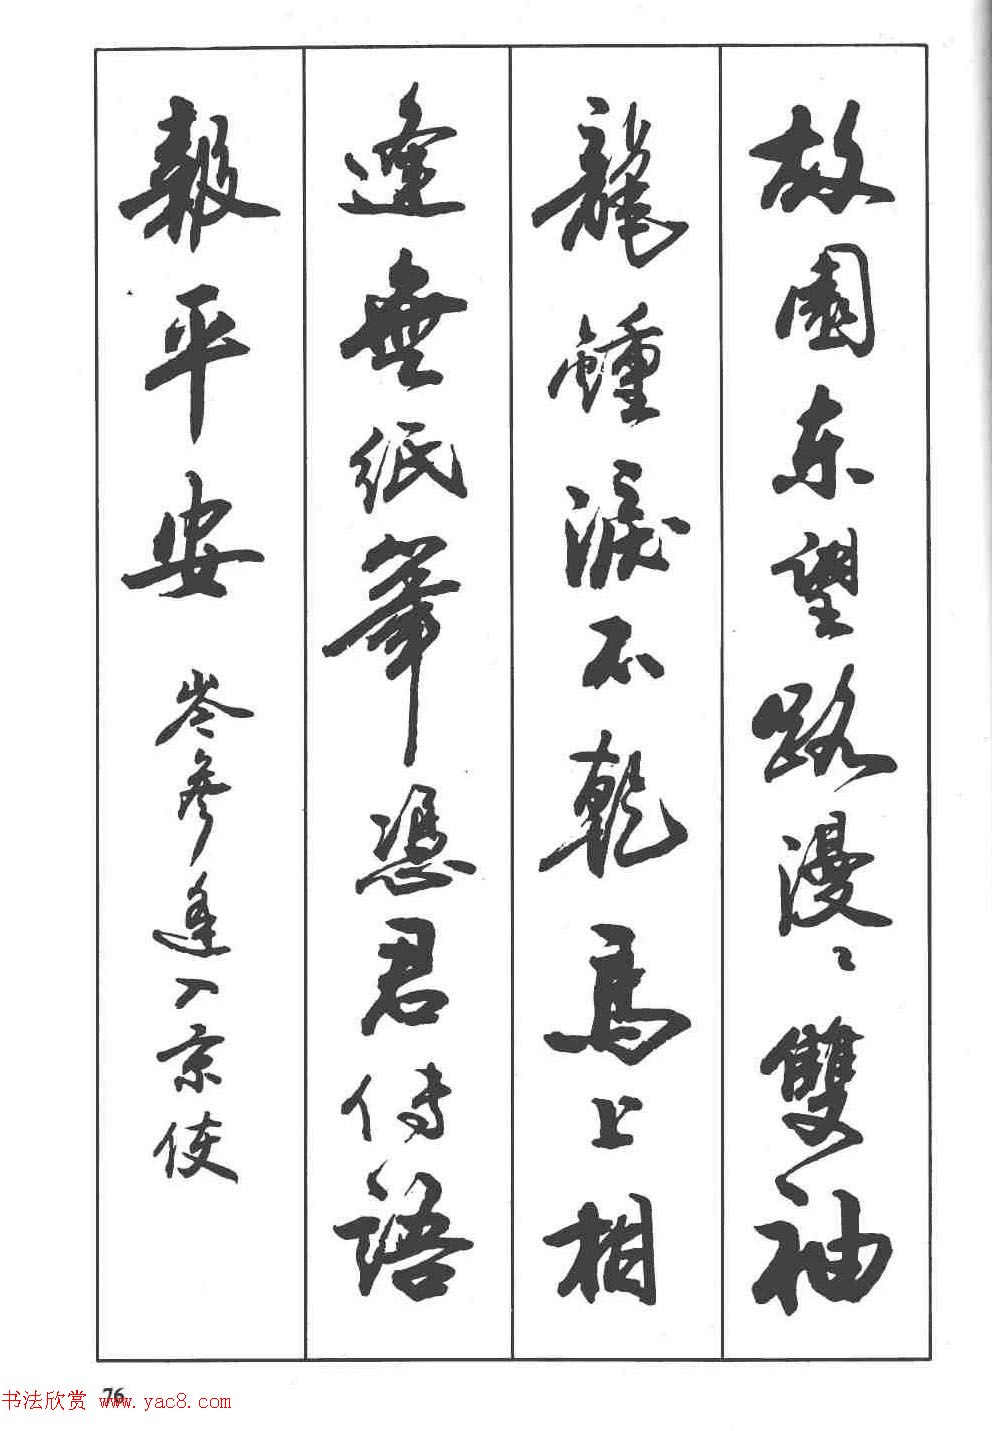 故園东望路漫〻雙袖
龍鍾淚不乾馬上相
逢無紙筆憑君传語
報平安 岑參逢入京使
76
书法欣赏 www.yac8.com